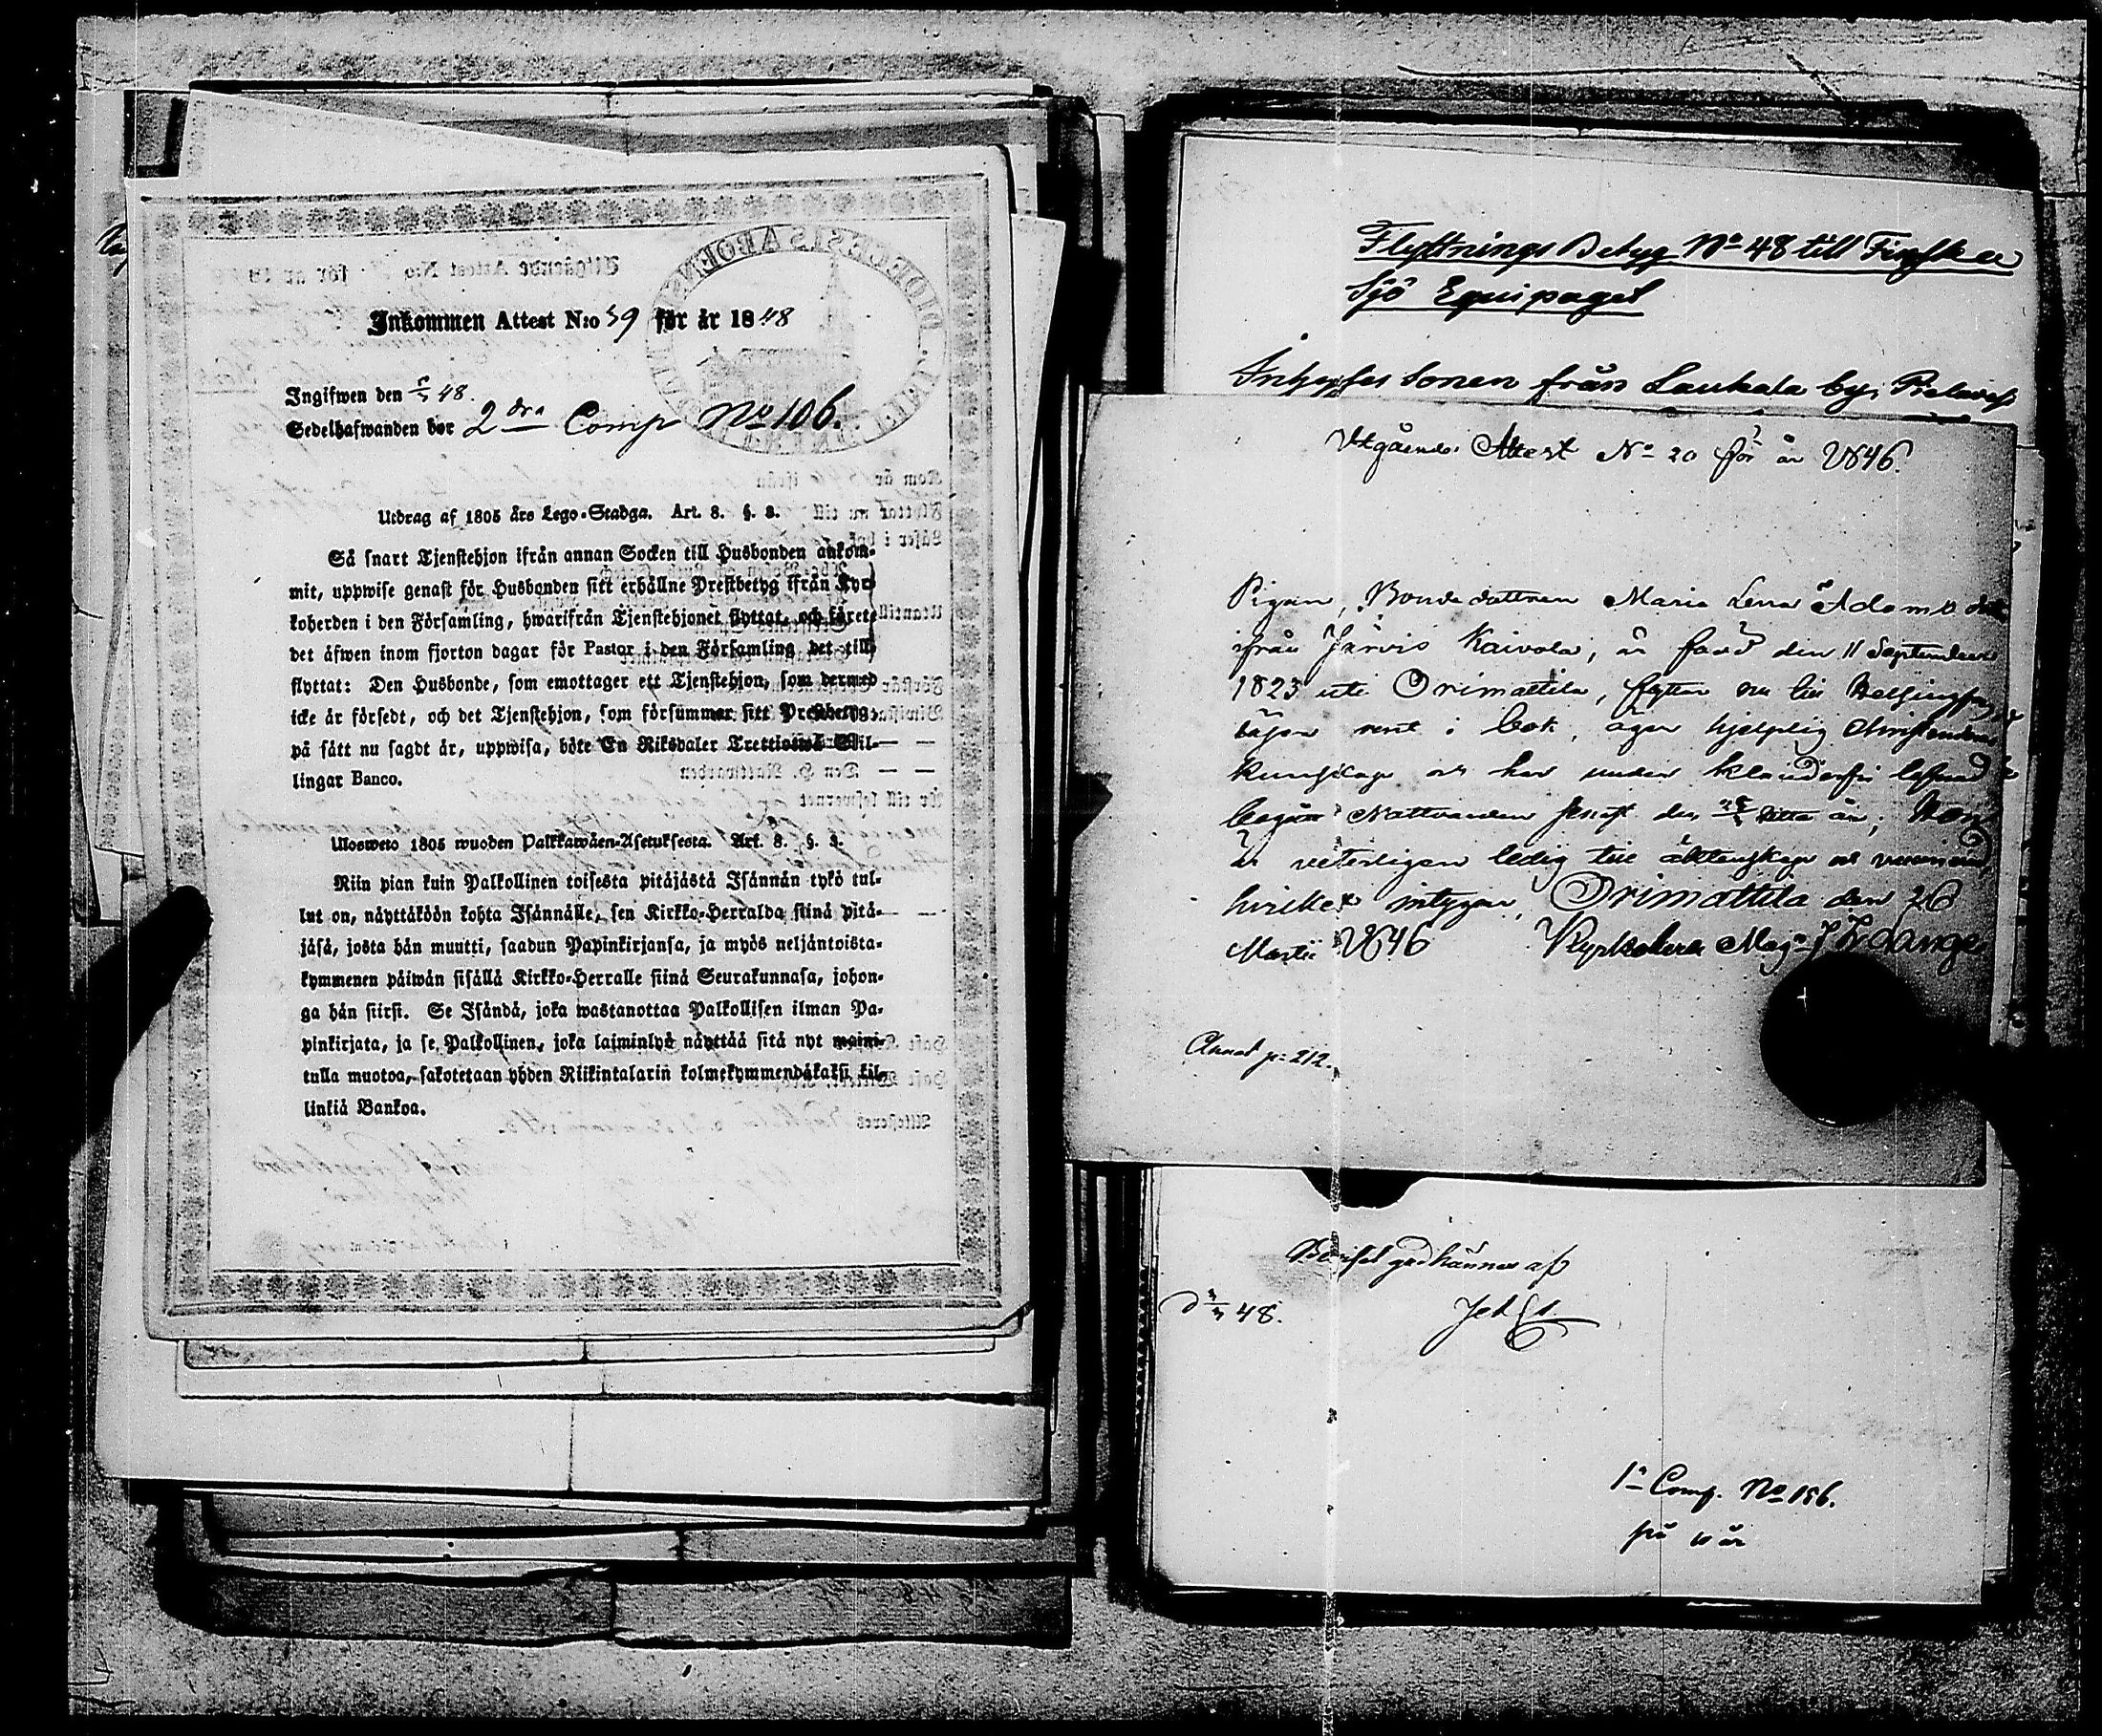 Inkommen Attest N:o 39 för år 1848
Ingifwen den 48.
Sedelhafwanden bor 2dra Comp No 106.
Utdrag af 1805 års Lego-Stadga. Art. 8. §. 3.
Så snart Tjenstehjon ifrån annan Socken till Husbonden ankom-
mit, uppwise genast för Husbonden sitt erhållne Prestbetyg ifrån Kyr-
koherden i den Församling, hwarifrån Tjenstehjonet flyttat, och förete
det äfwen inom fjorton dagar för Pastor i den Församling det till-
flyttat: Den Husbonde, som emottager ett Tjenstehjon, som dermed
icke är försedt, och det Tjenstehjon, som försummar sitt Prestbetyg,
på sätt nu sagdt är, uppwisa, böte En Riksdaler Trettiotwå Skil-
lingar Banco.
Ulosweto 1805 wuoden Palkkawäen-Asetuksesta. Art. 8. §. 3.
Niin pian kuin Palkollinen toisesta pitäjästä Isännän tykö tul-
lut on, näyttäköön kohta Isännälle, sen Kirkko-Herralda siinä pitä-
jäsä, josta hän muutti, saadun Papinkirjansa, ja myös neljäntoista-
kymmenen päiwän sisällä Kirkko-Herralle siinä Seurakunnasa, johon-
ga hän siirsi. Se Isändä, joka wastanottaa Palkollisen ilman Pa-
pinkirjata, ja se Palkollinen, joka laiminlyö näyttää sitä nyt maini-
tulla muotoa, sakotetaan yhden Riikintalarin kolmekymmendäkaksi kil-
linkiä Bankoa.
Flyttnings Betyg No 48 till Finska
Sjö Equipaget
Inhyses sonen från Laukala by, Pielaves
Utgående Attest No 20 för år 1846.
Pigan, Bondedottren Maria Lena Adams dotter
ifrån Järvis Kaivola, är född den 11 September
1823 uti Orimattila, flyttar nu till Helsingfors,
läser rent i bok, äger hjelplig Christendoms
kunskap och har under klanderfri lefnad
begått Nattvarden senast den detta år; Hon
är veterligen ledig till äktenskap och
hvilket intygar, Orimattila den 26
Martii 1846 Kyrkoherd Mag
Annot p: 212.
Beviset godkännes af
d 48.
1a Comp. No 196.
på 10 år